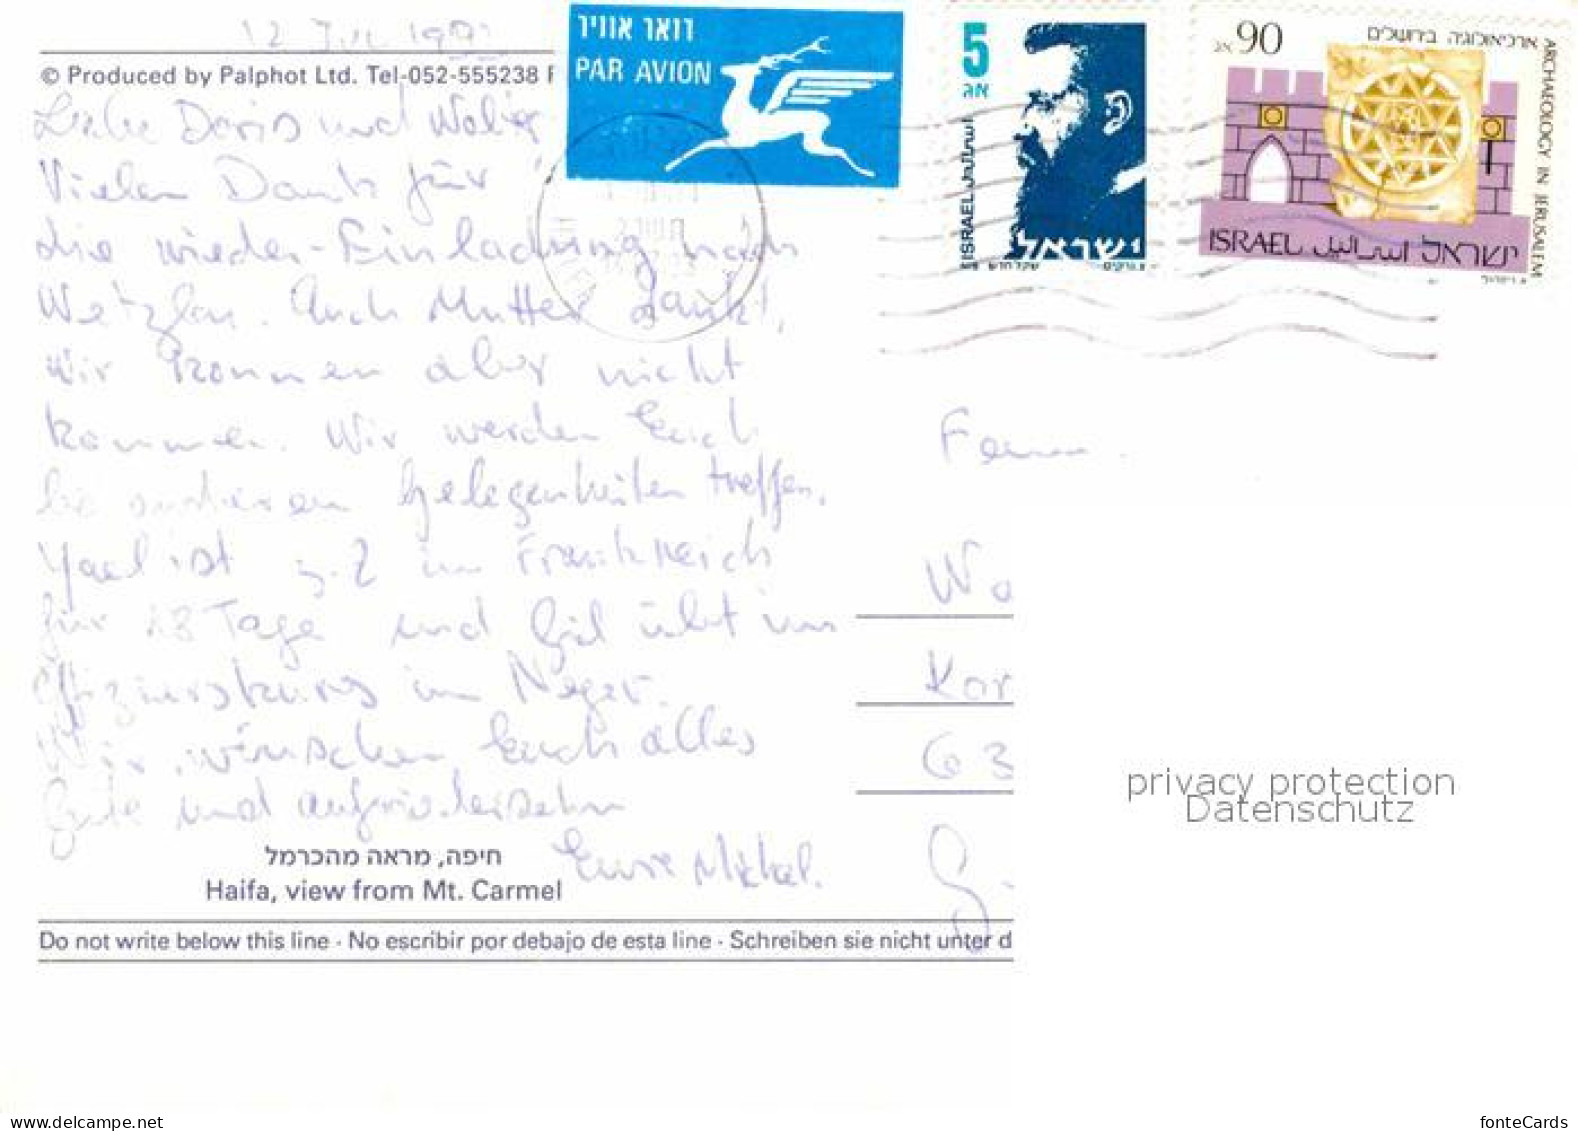 12 JUL 199
© Produced by Palphot Ltd. Tel-052-555238
Liebe Doris und Walter
Vielen Dank für
die wieder-Einladung nach
Wetzlar. Auch Mutter dankt,
wir können aber nicht
kommen. Wir werden Euch
bei anderen Gelegenheiten treffen.
Yael ist z.Z im Frankreich
für 18 Tage und Gil übt im
Offizierskurs im Neger.
Wir wünschen Euch alles
Gute und aufwiedersehn
Eure Michal.
חיפה, מראה מהכרמל
Haifa, view from Mt. Carmel
Do not write below this line · No escribir por debajo de esta line · Schreiben sie nicht unter d
דואר אוויר
PAR AVION
5
אג
ISRAEL اسرائيل
ישראל
90 אג
ארכיאולוגיה בירושלים
ARCHAEOLOGY IN JERUSALEM
ISRAEL اسرائيل ישראל
Fam.
Wa
Kar
63
privacy protection
Datenschutz
www.delcampe.net
fonteCards